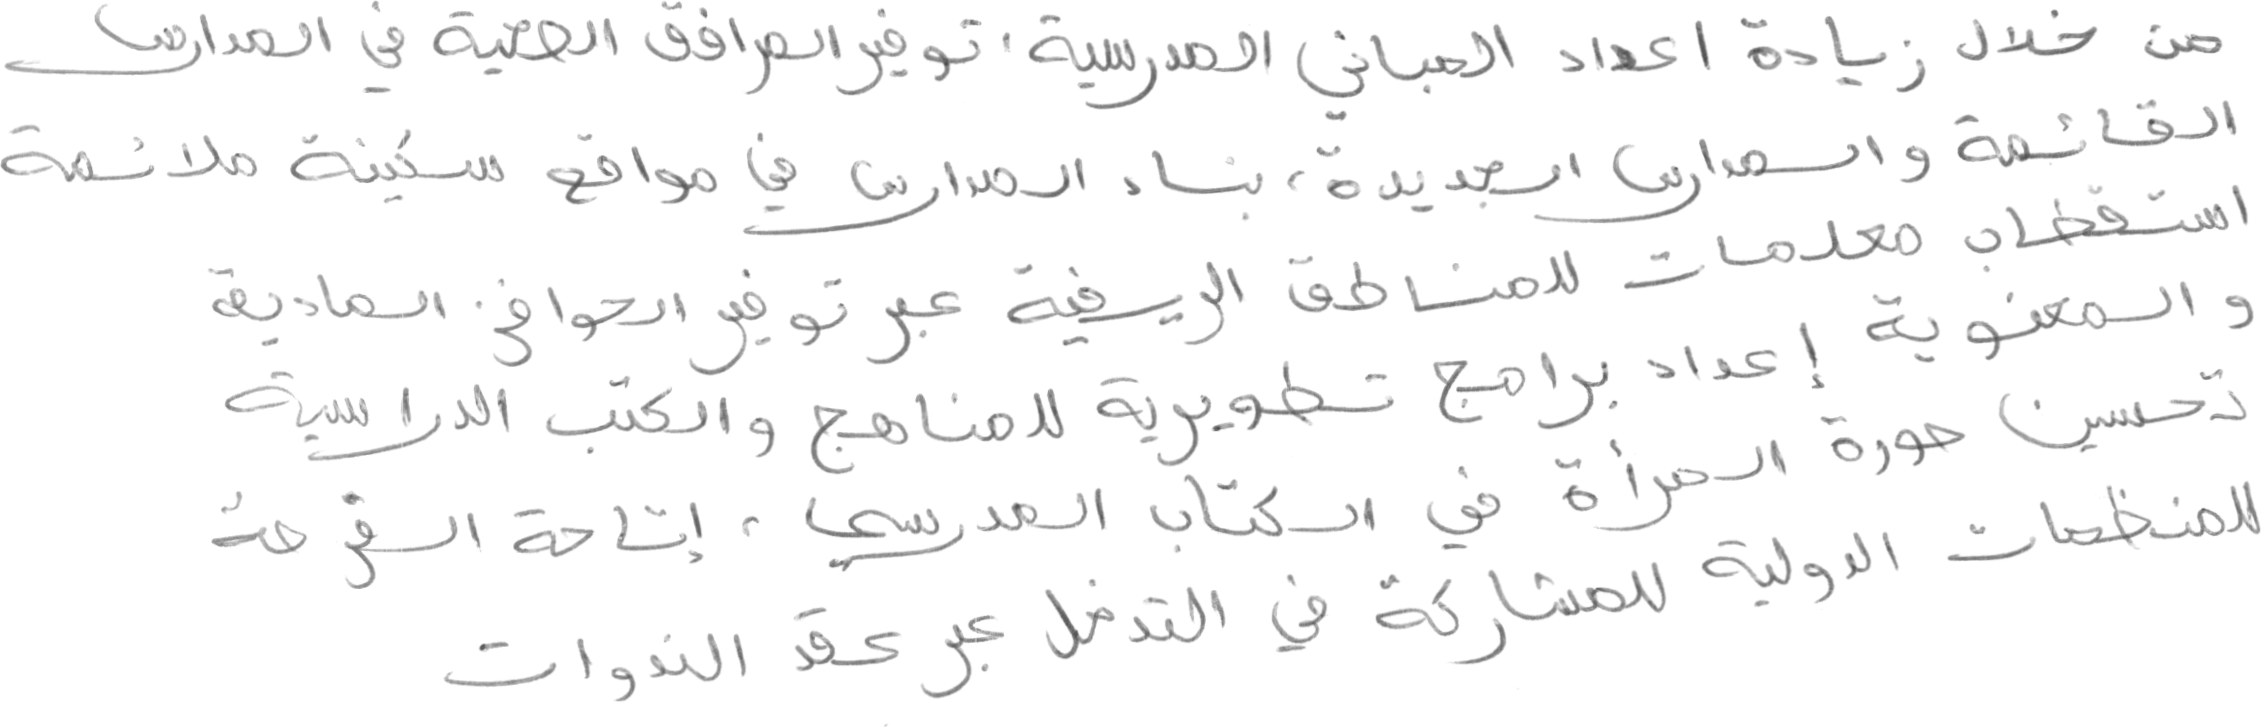 من خلال زيادة اعداد المباني المدرسية، توفير المرافق الصحية في المدارس
القائمة والمدارس الجديدة، بناء المدارس في مواقع سكينة ملائمة
استقطاب معلمات للمناطق الريفية عبر توفير الحوافز المادية
والمعنوية إعداد برامج تطويرية للمناهج والكتب الدراسية
تحسين صورة المرأة في الكتاب المدرسي، إتاحة الفرصة
للمنظمات الدولية للمشاركة في التدخل عبر عقد الندوات